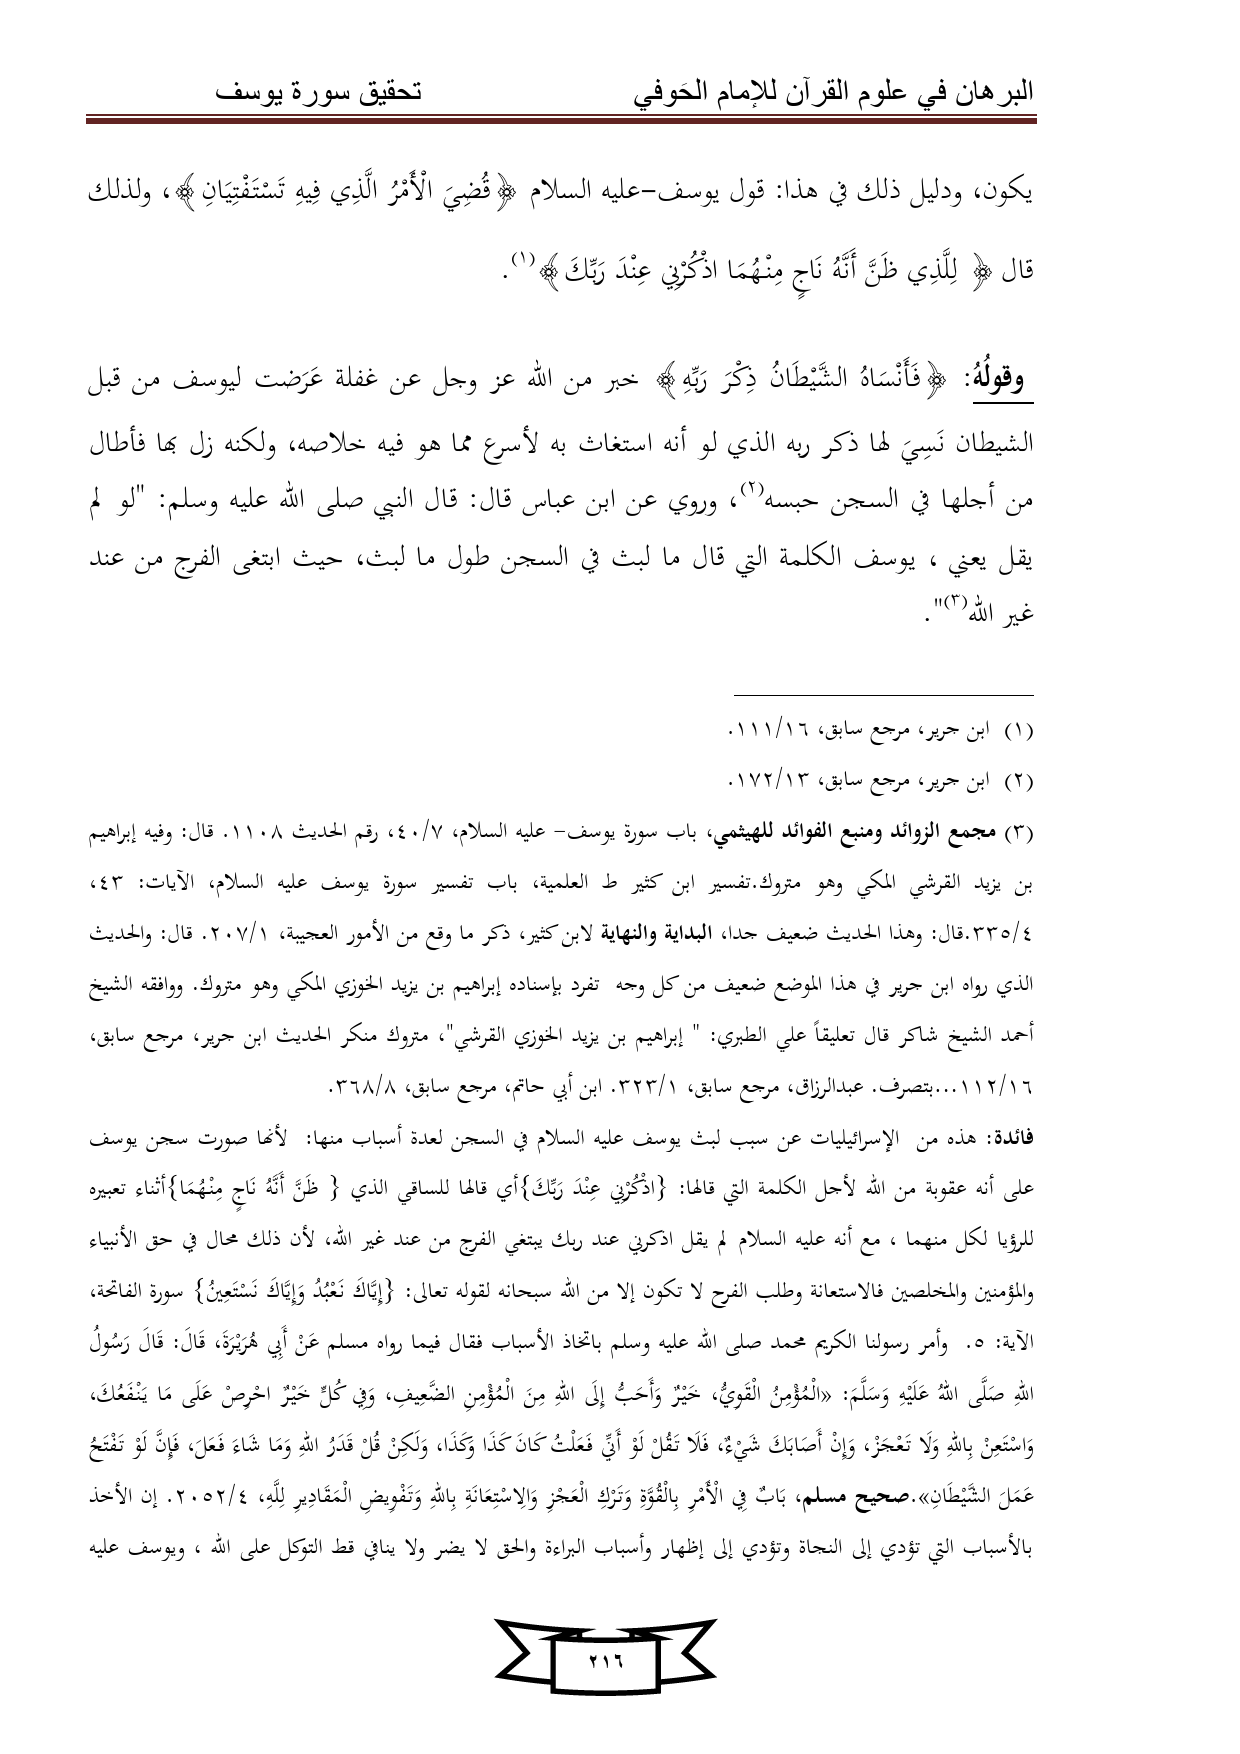 البرهان في علوم القرآن للإمام الحَوفي تحقيق سورة يوسف
يكون، ودليل ذلك في هذا: قول يوسف–عليه السلام ﴿قُضِيَ الْأَمْرُ الَّذِي فِيهِ تَسْتَفْتِيَانِ﴾، ولذلك
قال ﴿ لِلَّذِي ظَنَّ أَنَّهُ نَاجٍ مِنْهُمَا اذْكُرْنِي عِنْدَ رَبِّكَ﴾(١).
وقولُهُ: ﴿فَأَنْسَاهُ الشَّيْطَانُ ذِكْرَ رَبِّهِ﴾ خبر من الله عز وجل عن غفلة عَرَضت ليوسف من قبل
الشيطان نَسِيَ لها ذكر ربه الذي لو أنه استغاث به لأسرع مما هو فيه خلاصه، ولكنه زل بها فأطال
من أجلها في السجن حبسه(٢)، وروي عن ابن عباس قال: قال النبي صلى الله عليه وسلم: "لو لم
يقل يعني ، يوسف الكلمة التي قال ما لبث في السجن طول ما لبث، حيث ابتغى الفرج من عند
غير الله(٣)".
(١) ابن جرير، مرجع سابق، ١١١/١٦.
(٢) ابن جرير، مرجع سابق، ١٧٢/١٣.
(٣) مجمع الزوائد ومنبع الفوائد للهيثمي، باب سورة يوسف- عليه السلام، ٤٠/٧، رقم الحديث ١١٠٨. قال: وفيه إبراهيم
بن يزيد القرشي المكي وهو متروك.تفسير ابن كثير ط العلمية، باب تفسير سورة يوسف عليه السلام، الآيات: ٤٣،
٣٣٥/٤.قال: وهذا الحديث ضعيف جدا، البداية والنهاية لابن كثير، ذكر ما وقع من الأمور العجيبة، ٢٠٧/١. قال: والحديث
الذي رواه ابن جرير في هذا الموضع ضعيف من كل وجه تفرد بإسناده إبراهيم بن يزيد الخوزي المكي وهو متروك. ووافقه الشيخ
أحمد الشيخ شاكر قال تعليقاً علي الطبري: " إبراهيم بن يزيد الخوزي القرشي"، متروك منكر الحديث ابن جرير، مرجع سابق،
١١٢/١٦...بتصرف. عبدالرزاق، مرجع سابق، ٣٢٣/١. ابن أبي حاتم، مرجع سابق، ٣٦٨/٨.
فائدة: هذه من الإسرائيليات عن سبب لبث يوسف عليه السلام في السجن لعدة أسباب منها: لأنها صورت سجن يوسف
على أنه عقوبة من الله لأجل الكلمة التي قالها: {اذْكُرْنِي عِنْدَ رَبِّكَ}أي قالها للساقي الذي { ظَنَّ أَنَّهُ نَاجٍ مِنْهُمَا}أثناء تعبيره
للرؤيا لكل منهما ، مع أنه عليه السلام لم يقل اذكرني عند ربك يبتغي الفرج من عند غير الله، لأن ذلك محال في حق الأنبياء
والمؤمنين والمخلصين فالاستعانة وطلب الفرح لا تكون إلا من الله سبحانه لقوله تعالى: {إِيَّاكَ نَعْبُدُ وَإِيَّاكَ نَسْتَعِينُ} سورة الفاتحة،
الآية: ٥. وأمر رسولنا الكريم محمد صلى الله عليه وسلم باتخاذ الأسباب فقال فيما رواه مسلم عَنْ أَبِي هُرَيْرَةَ، قَالَ: قَالَ رَسُولُ
اللهِ صَلَّى اللهُ عَلَيْهِ وَسَلَّمَ: «الْمُؤْمِنُ الْقَوِيُّ، خَيْرٌ وَأَحَبُّ إِلَى اللهِ مِنَ الْمُؤْمِنِ الضَّعِيفِ، وَفِي كُلٍّ خَيْرٌ احْرِصْ عَلَى مَا يَنْفَعُكَ،
وَاسْتَعِنْ بِاللهِ وَلَا تَعْجَزْ، وَإِنْ أَصَابَكَ شَيْءٌ، فَلَا تَقُلْ لَوْ أَنِّي فَعَلْتُ كَانَ كَذَا وَكَذَا، وَلَكِنْ قُلْ قَدَرُ اللهِ وَمَا شَاءَ فَعَلَ، فَإِنَّ لَوْ تَفْتَحُ
عَمَلَ الشَّيْطَانِ».صحيح مسلم، بَابٌ فِي الْأَمْرِ بِالْقُوَّةِ وَتَرْكِ الْعَجْزِ وَالِاسْتِعَانَةِ بِاللهِ وَتَفْوِيضِ الْمَقَادِيرِ لِلَّهِ، ٢٠٥٢/٤. إن الأخذ
بالأسباب التي تؤدي إلى النجاة وتؤدي إلى إظهار وأسباب البراءة والحق لا يضر ولا ينافي قط التوكل على الله ، ويوسف عليه
٢١٦